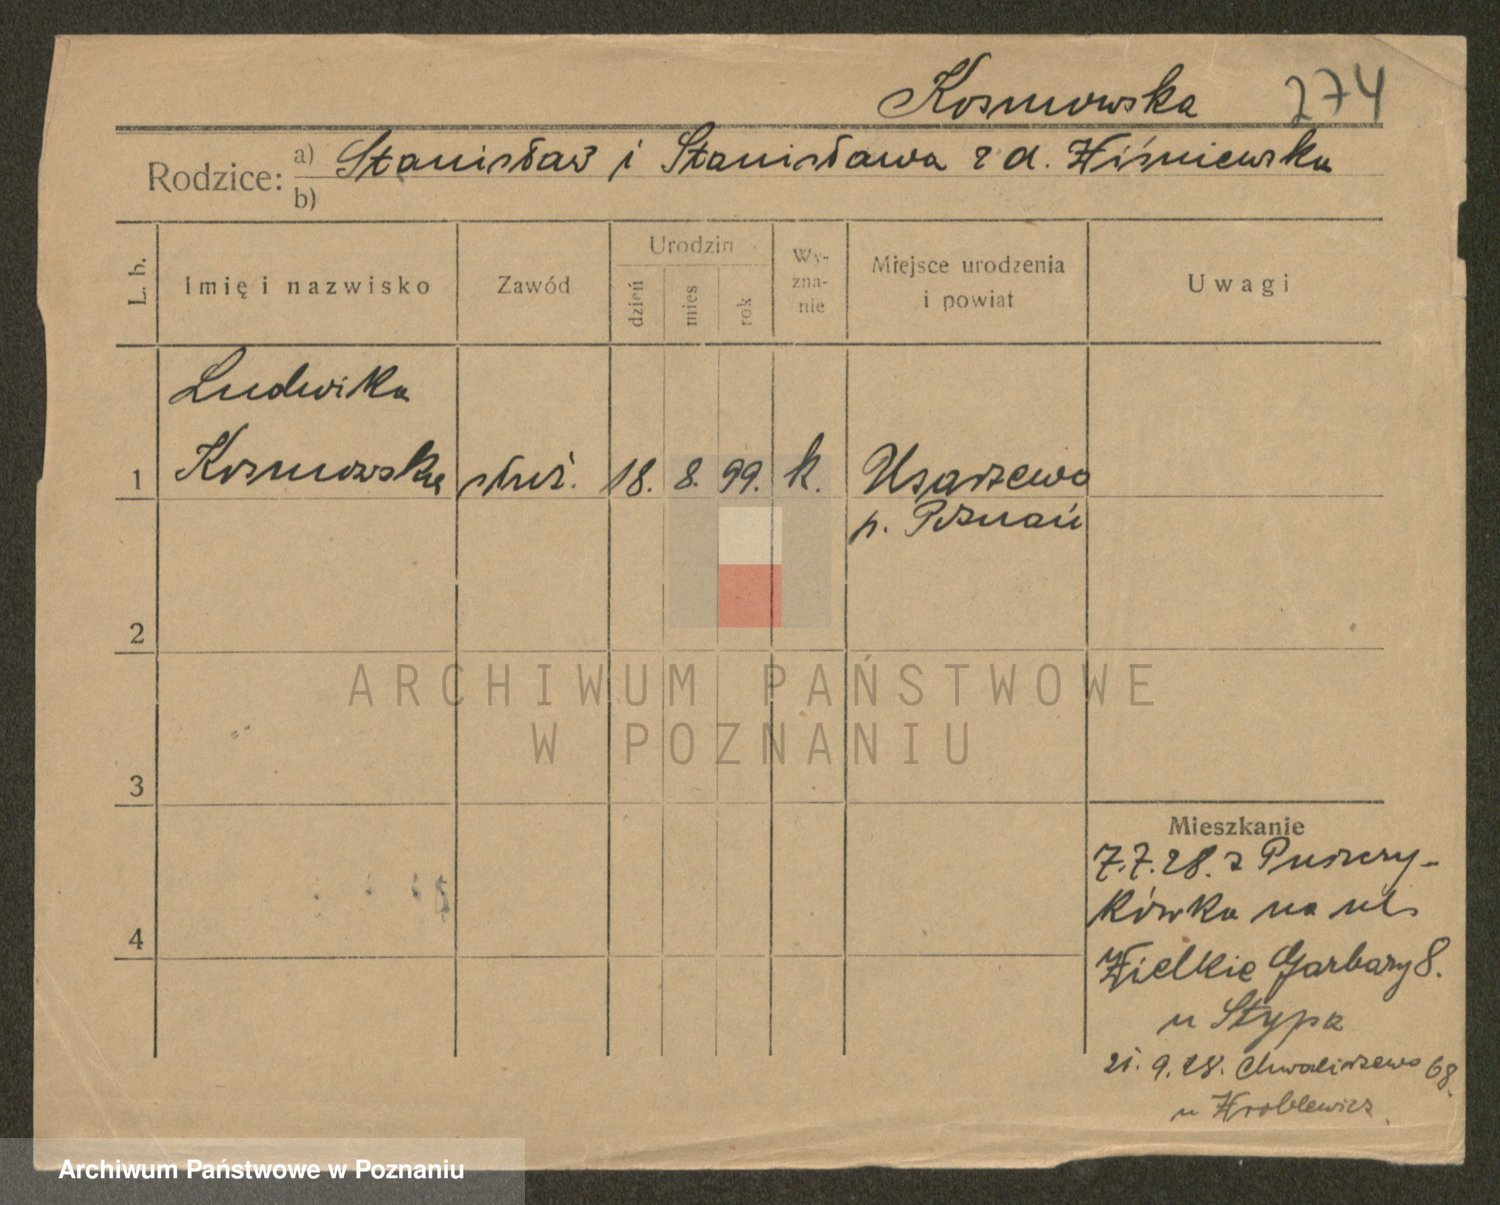 Kosmowska 274
Rodzice: a) Stanisław i Stanisława z d. Wiśniewska
b)
L. b.
Imię i nazwisko
Zawód
Urodzin
dzień
mies
rok
Wy-
zna-
nie
Miejsce urodzenia
i powiat
Uwagi
Ludwika
1 Kosmowska służ. 18. 8. 99. k. Usarzewo
p. Poznań
2
3
4
Mieszkanie
7.7.28. z Puszczy-
kówka na ul.
Wielkie Garbary 8.
u Stypa
21. 9. 28. Chwaliszewo 68.
u Wroblewicz
ARCHIWUM PAŃSTWOWE
W POZNANIU
Archiwum Państwowe w Poznaniu